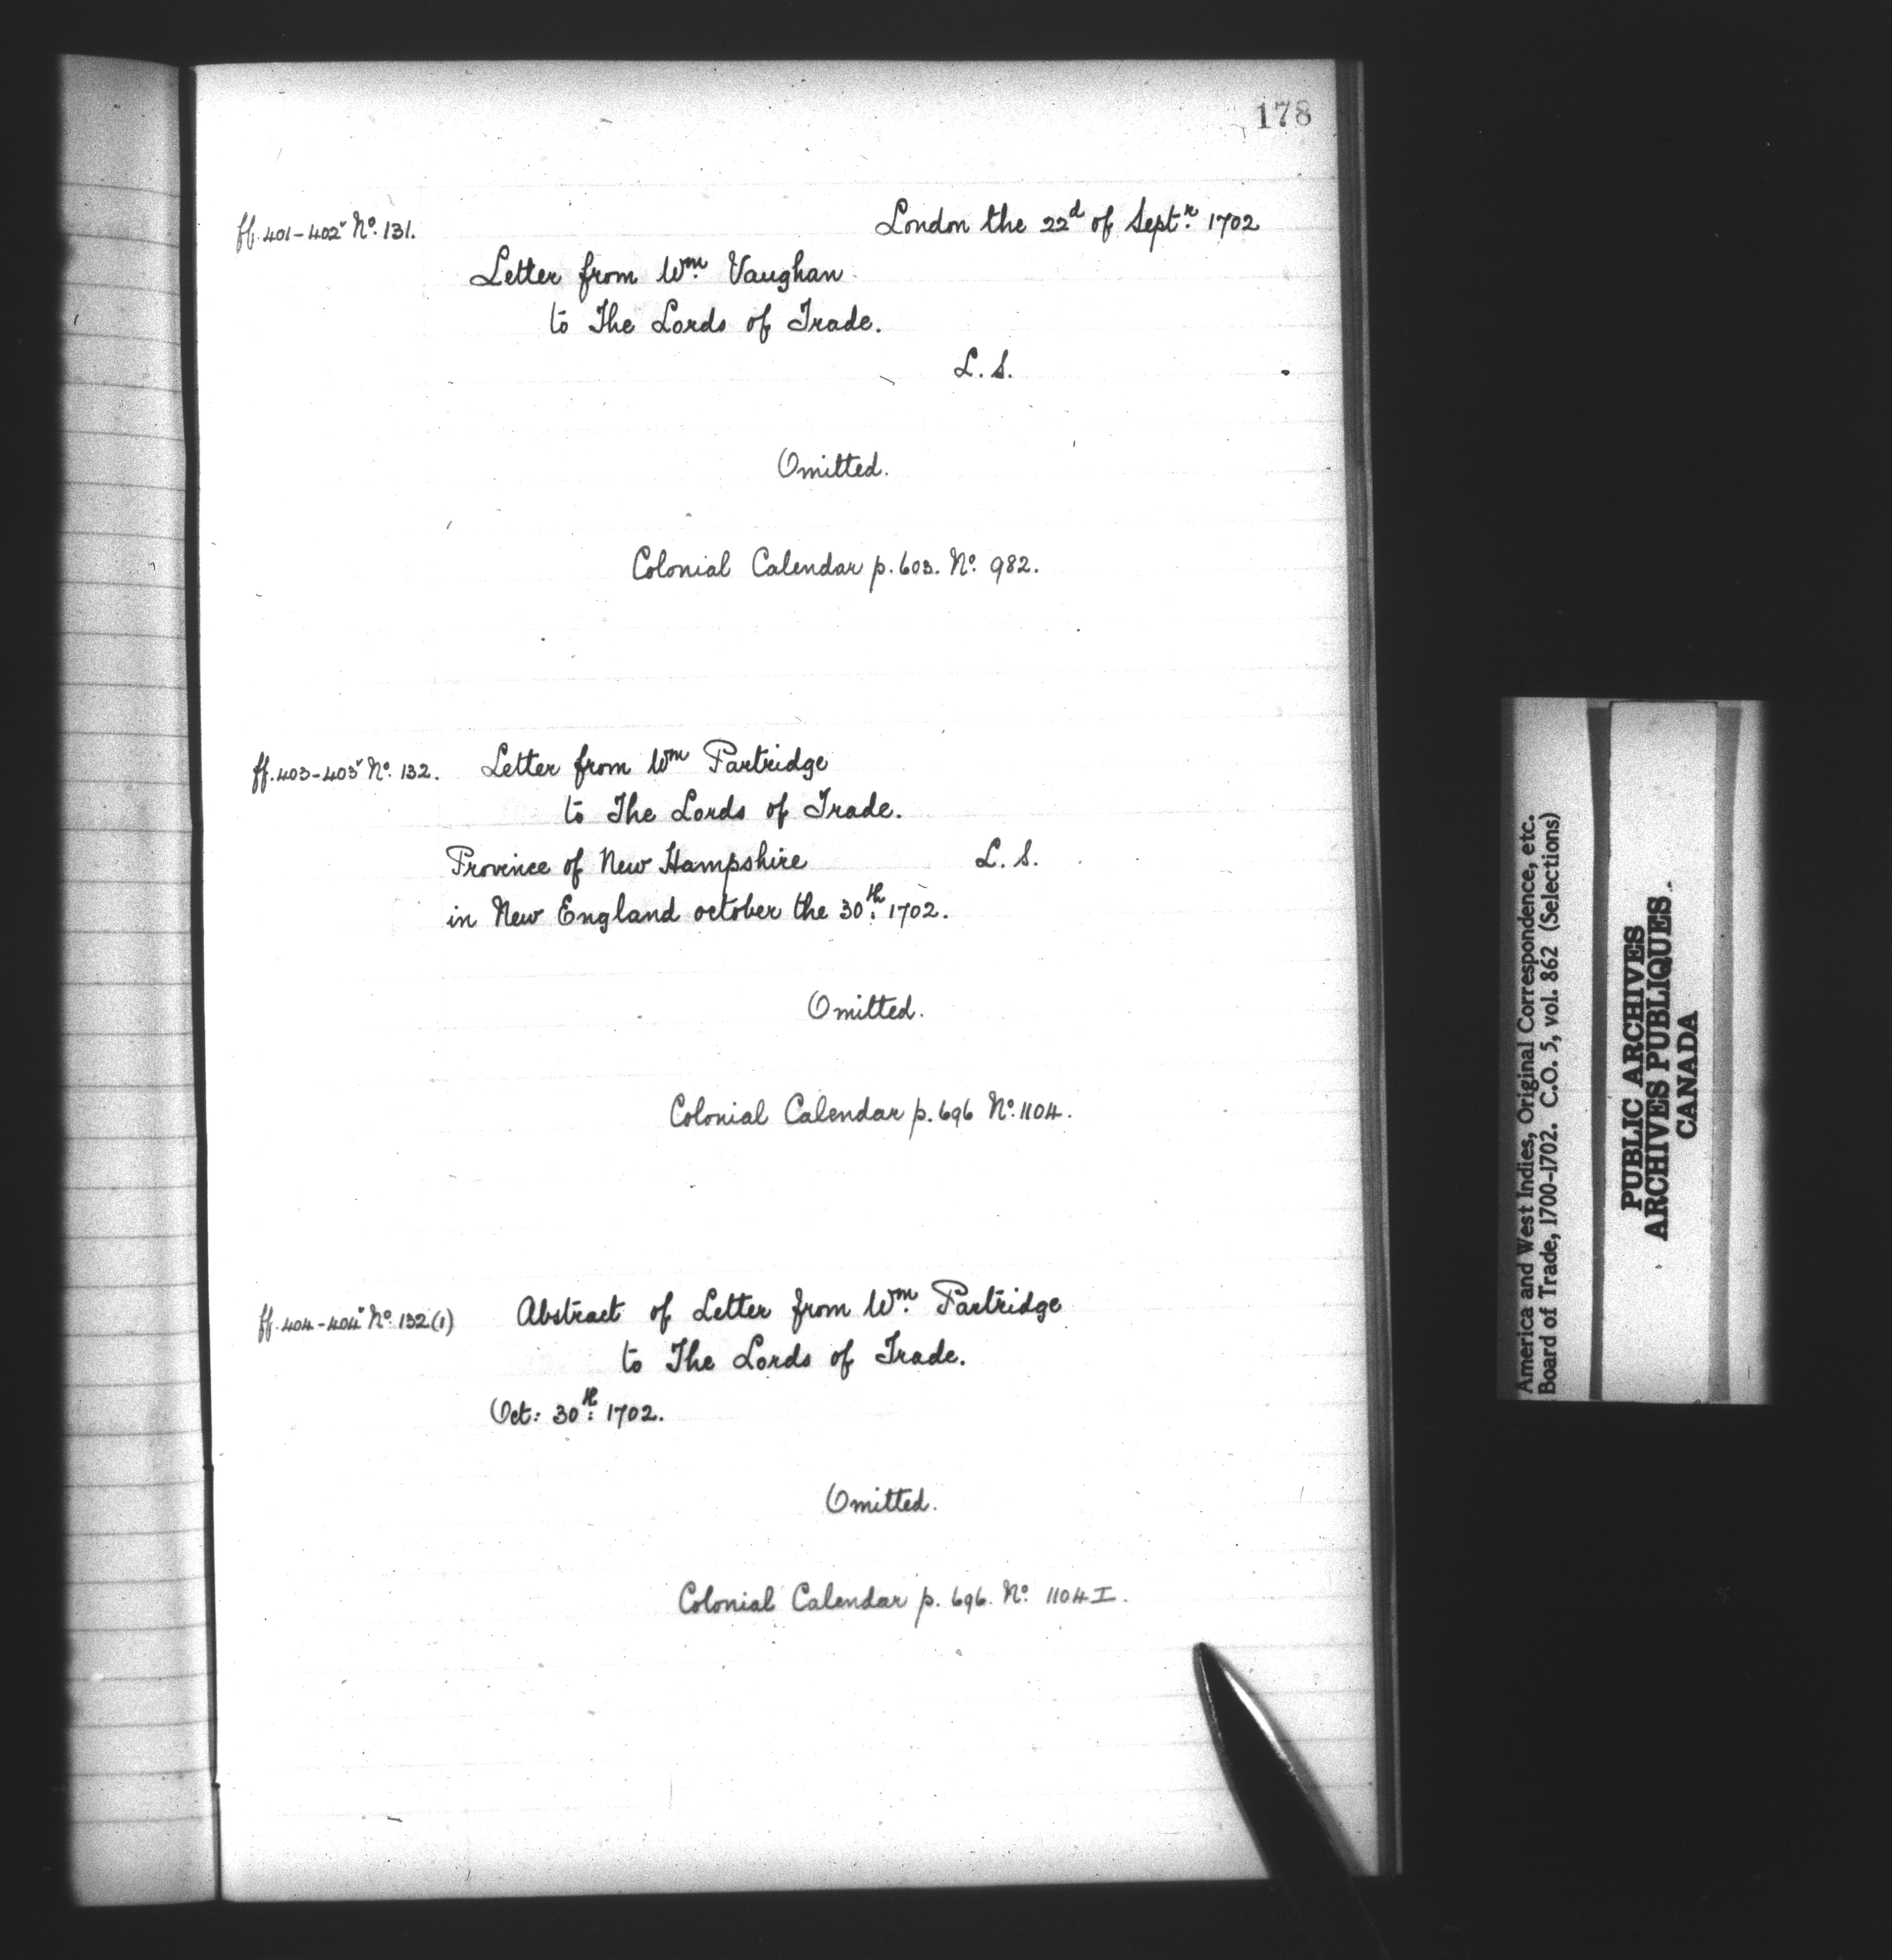 178
ff. 401-402ᵛ Nº. 131.
London the 22ᵈ of Septʳ. 1702
Letter from Wᵐ. Vaughan
to The Lords of Trade.
L. S.
Omitted.
Colonial Calendar p. 603. Nº. 982.
ff. 403-403ᵛ Nº. 132.
Letter from Wᵐ Partridge
to The Lords of Trade.
Province of New Hampshire L. S.
in New England october the 30ᵗʰ. 1702.
Omitted.
Colonial Calendar p. 696 Nº. 1104.
ff. 404-404ᵛ Nº. 132(1)
Abstract of Letter from Wᵐ. Partridge
to The Lords of Trade.
Oct: 30ᵗʰ: 1702.
Omitted.
Colonial Calendar p. 696. Nº. 1104 I.
America and West Indies, Original Correspondence, etc.
Board of Trade, 1700-1702. C.O. 5, vol. 862 (Selections)
PUBLIC ARCHIVES
ARCHIVES PUBLIQUES
CANADA